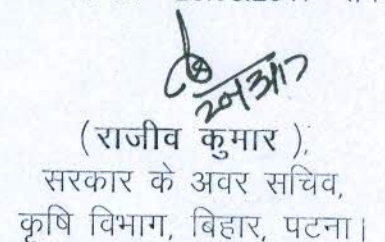 20/3/17
(राजीव कुमार ),
सरकार के अवर सचिव,
कृषि विभाग, बिहार, पटना।